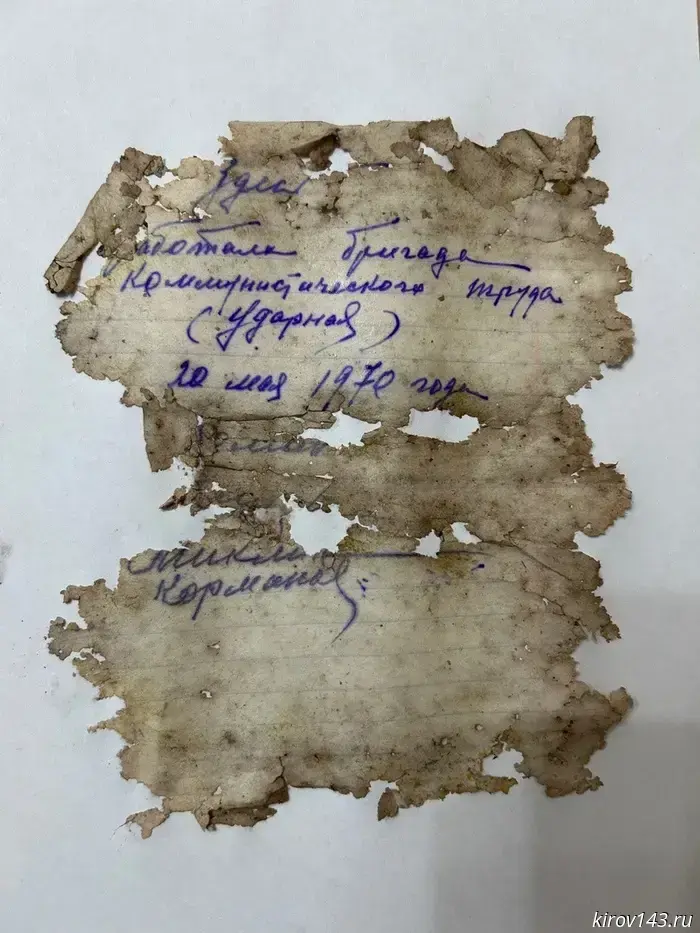 Здесь
работала бригада
Коммунистического труда
(Ударная)
20 мая 1970 года
Корманов
kirov143.ru